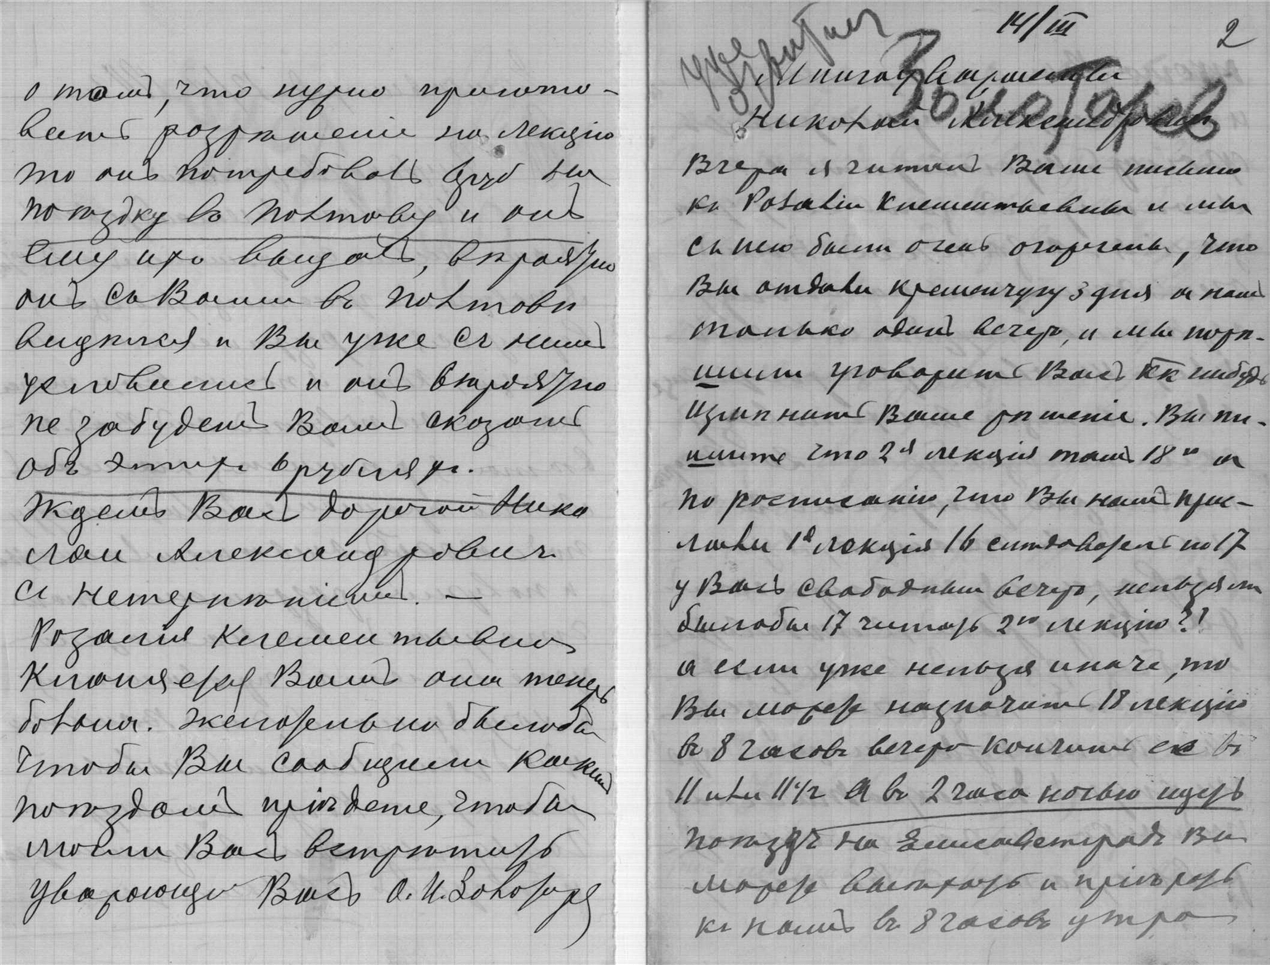 о томъ, что нужно пригото-
вить розрѣшеніе на лекцію
то онъ потребовалъ 6 руб на
поѣздку въ Полтаву и онъ
ему ихъ выдалъ, вѣроятно
онъ съ Вами въ Полтавѣ
видѣлся и Вы уже съ нимъ
условились и онъ вѣроятно
не забудетъ Вамъ сказать
объ этихъ 6 рубляхъ.
Ждемъ Васъ дорогой Нико
лаи Александровичъ
съ нетерпѣніемъ. —
Розалия Клементьевна
Кланяется Вамъ она теперь
больна. Желательно было бы
чтобы Вы сообщили какимъ
поѣздомъ пріѣдете, чтобы
могли Васъ встрѣтить
уважающій Васъ О. И. Золотарев
14/III
2
уже
Золотарев
Многоуважаемый
Николай Александровичъ
Вчера я читалъ Ваше письмо
къ Розаліи Клементьевны и мы
съ нею были очень огорчены, что
Вы отдали Кременчугу 3 дня а намъ
только одинъ вечеръ, и мы порѣ-
шили уговорить Васъ какъ нибудь
измѣнить Ваше рѣшеніе. Вы пи-
шите что 2я лекція тамъ 18го а
по росписанію, что Вы намъ прис-
лали 1я лекція 16 слѣдовательно 17
у Васъ свободный вечеръ, нельзя ли
было бы 17 читать 2ю лекцію?!
а если уже нельзя иначе, то
Вы можете назначить 18 лекцію
въ 8 часовъ вечера кончить ее въ
11 или 11 1/2 А въ 2 часа ночью идетъ
поѣздъ на Элисаветградъ Вы
можете выѣхать и пріѣхать
къ намъ въ 8 часовъ утра